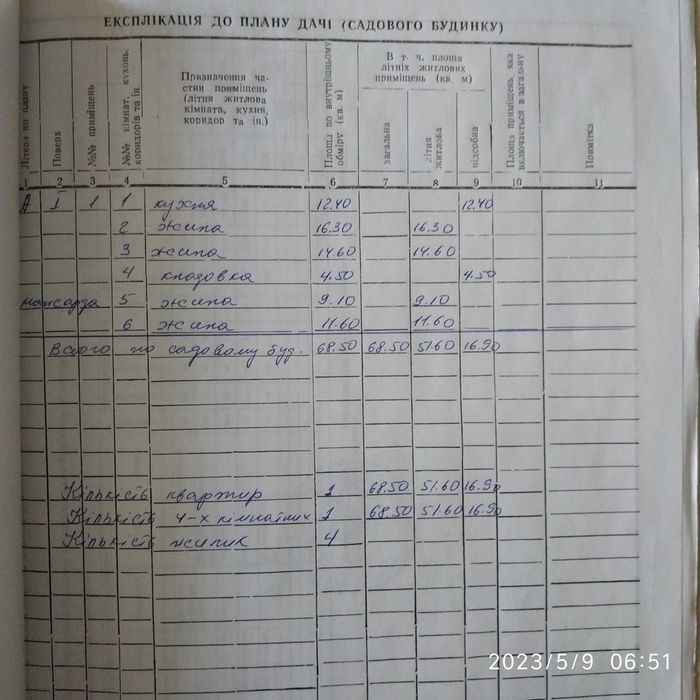 ЕКСПЛІКАЦІЯ ДО ПЛАНУ ДАЧІ (САДОВОГО БУДИНКУ)
Літера по плану
Поверх
№№ приміщень
№№ кімнат, кухонь, коридорів та ін.
Призначення частин приміщень (літня житлова кімната, кухня, коридор та ін.)
Площа по внутрішньому обміру (кв. м)
В т. ч. площа літніх житлових приміщень (кв. м)
загальна
літня житлова
підсобна
Площа приміщень, яка включається в загальну
Примітка
1 2 3 4 5 6 7 8 9 10 11
А I 1 1 кухня 12.40 12.40
2 жила 16.30 16.30
3 жила 14.60 14.60
4 кладовка 4.50 4.50
мансарда 5 жила 9.10 9.10
6 жила 11.60 11.60
Всього по садовому буд. 68.50 68.50 51.60 16.90
Кількість квартир 1 68.50 51.60 16.90
Кількість 4-х кімнатних 1 68.50 51.60 16.90
Кількість жилих 4
2023/5/9 06:51